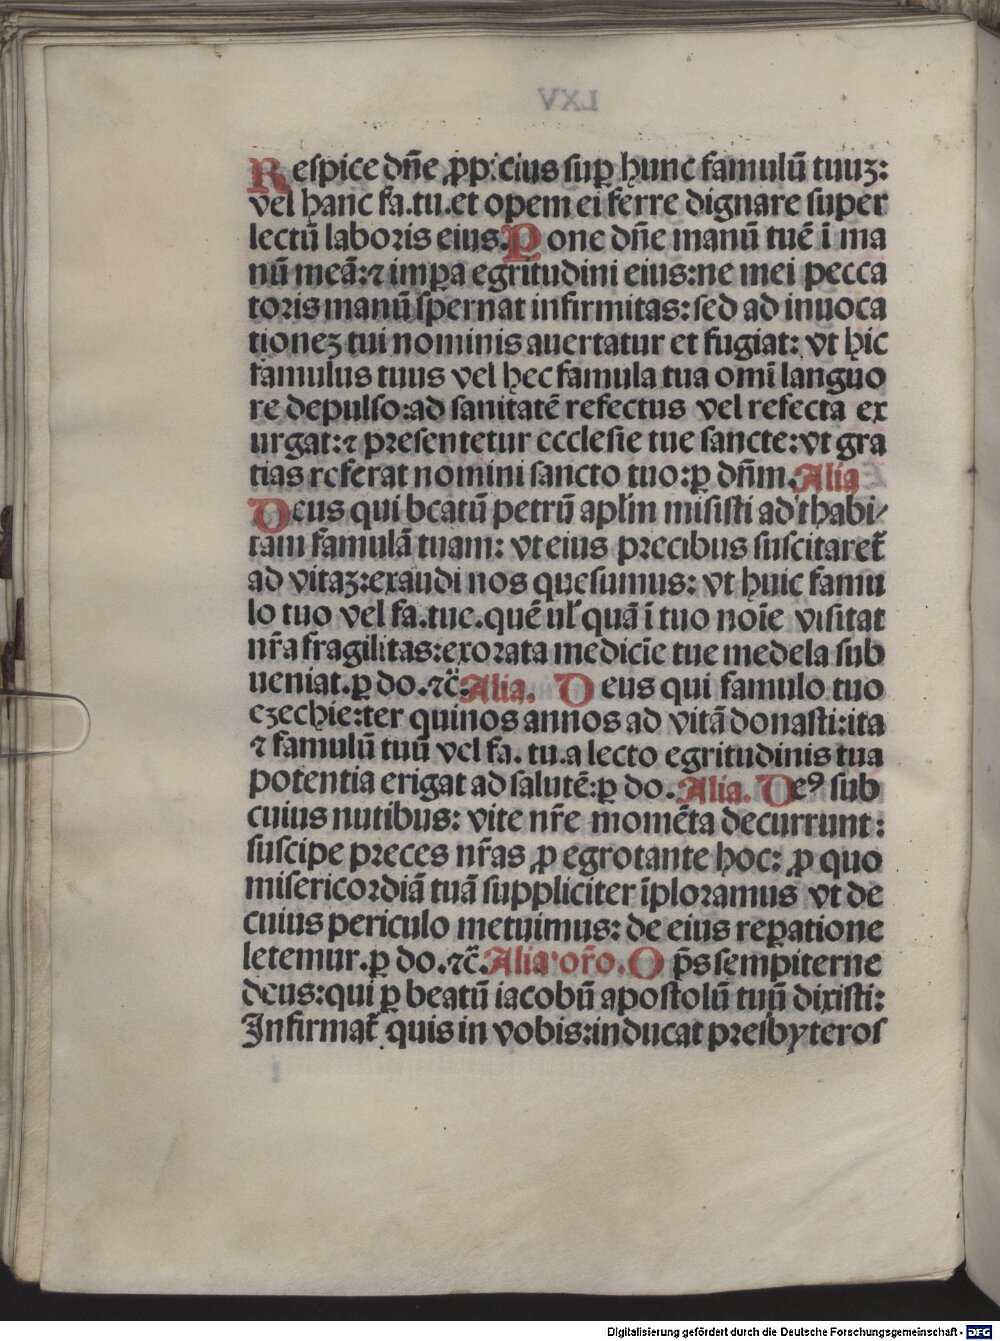 Respice dn̄e ꝓp:cius suꝑ hunc famulū tuuꝫ:
vel hanc fa.tu.et opem ei ferre dignare super
lectū laboris eius. Pone dn̄e manū tuē ī ma
nū meā:⁊ imꝑa egritudini eius:ne mei pecca
toris manū spernat infirmitas:sed ad inuoca
tioneꝫ tui nominis auertatur et fugiat: vt hic
famulus tuus vel hec famula tua omī languo
re depulso:ad sanitatē refectus vel refecta ex
urgat:⁊ presentetur ecclesie tue sancte:vt gra
tias referat nomini sancto tuo:ꝑ dn̄m. Alia
Deus qui beatū petrū apl̄m misisti ad thabi/
tam famulā tuam: vt eius precibus suscitaret̄
ad vitaꝫ:exaudi nos quesumus: vt huic famu
lo tuo vel fa.tue.quē ul̄ quā ī tuo noīe visitat
nr̄a fragilitas:exorata medicīe tue medela sub
ueniat.ꝑ do.⁊c̄. Alia. Deus qui famulo tuo
ezechie:ter quinos annos ad vitā donasti:ita
⁊ famulū tuū vel fa. tu.a lecto egritudinis tua
potentia erigat ad salutē:ꝑ do. Alia. Deꝰ sub
cuius nutibus: vite nr̄e momēta decurrunt:
suscipe preces nr̄as ꝓ egrotante hoc: ꝓ quo
misericordiā tuā suppliciter īploramus vt de
cuius periculo metuimus: de eius reꝑatione
letemur.ꝑ do.⁊c̄. Alia or̄o. Op̄s sempiterne
deus:qui ꝑ beatū iacobū apostolū tuū dixisti:
Infirmat̄ quis in vobis:inducat presbyteros
Digitalisierung gefördert durch die Deutsche Forschungsgemeinschaft - DFG